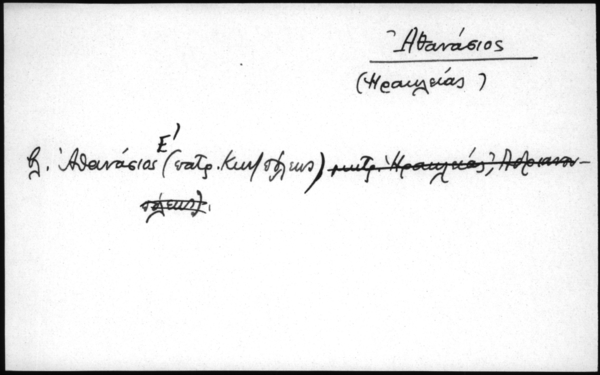 Ἀθανάσιος
(Ἡρακλείας)
βλ. Ἀθανάσιος Ε' (πατρ. Κων/πόλεως) μητρ. Ἡρακλείας, Ἀδριανου-
πόλεως.